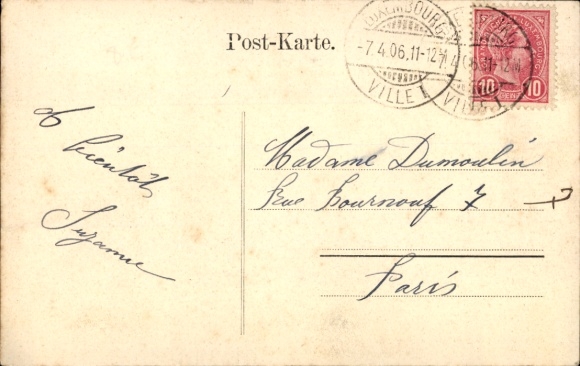 Post-Karte.
LUXEMBOURG
-7.4.06,11-12M
VILLE 1
10 10
A bientôt
Suzanne
Madame Dumoulin
Rue Bournouf 7
Paris